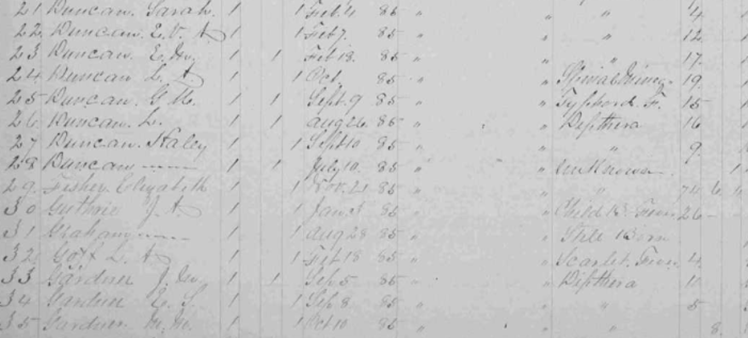 21 Duncan. Sarah 1 1 Feb. 4 85 " " " 4
22 Duncan. E. V. A 1 1 Feb 7. 85 " " " 12
23 Duncan. E. 1 1 Feb 18. 85 " " " 17
24 Duncan L. A 1 1 Oct. 85 " " 19
25 Duncan. G M. 1 1 Sept. 9 85 " " Typhoid Fr. 15
26 Duncan. L. 1 1 Aug 26. 85 " " Dipthera 16
27 Duncan. Haley 1 1 Sept 10 85 " " " 9
28 Duncan —— 1 1 July 10. 85 " " Unknown 1
29. Elizabeth 1 1 Nov. 21 85 " " "
30 Guthrie J. A 1 1 Jan. 3 85 " " Child B. Fever 26
31 Graham —— 1 1 Aug 28 85 " " Still Born
32 Goff L. A 1 1 85 " " Scarlet. Fever 4
33 Gardner J. 1 1 Sep. 5 85 " " Dipthera
34 Gardner 1 1 Feb 8 85 " " " 5
35 Gardner 1 1 Oct 10 85 " " " 8.